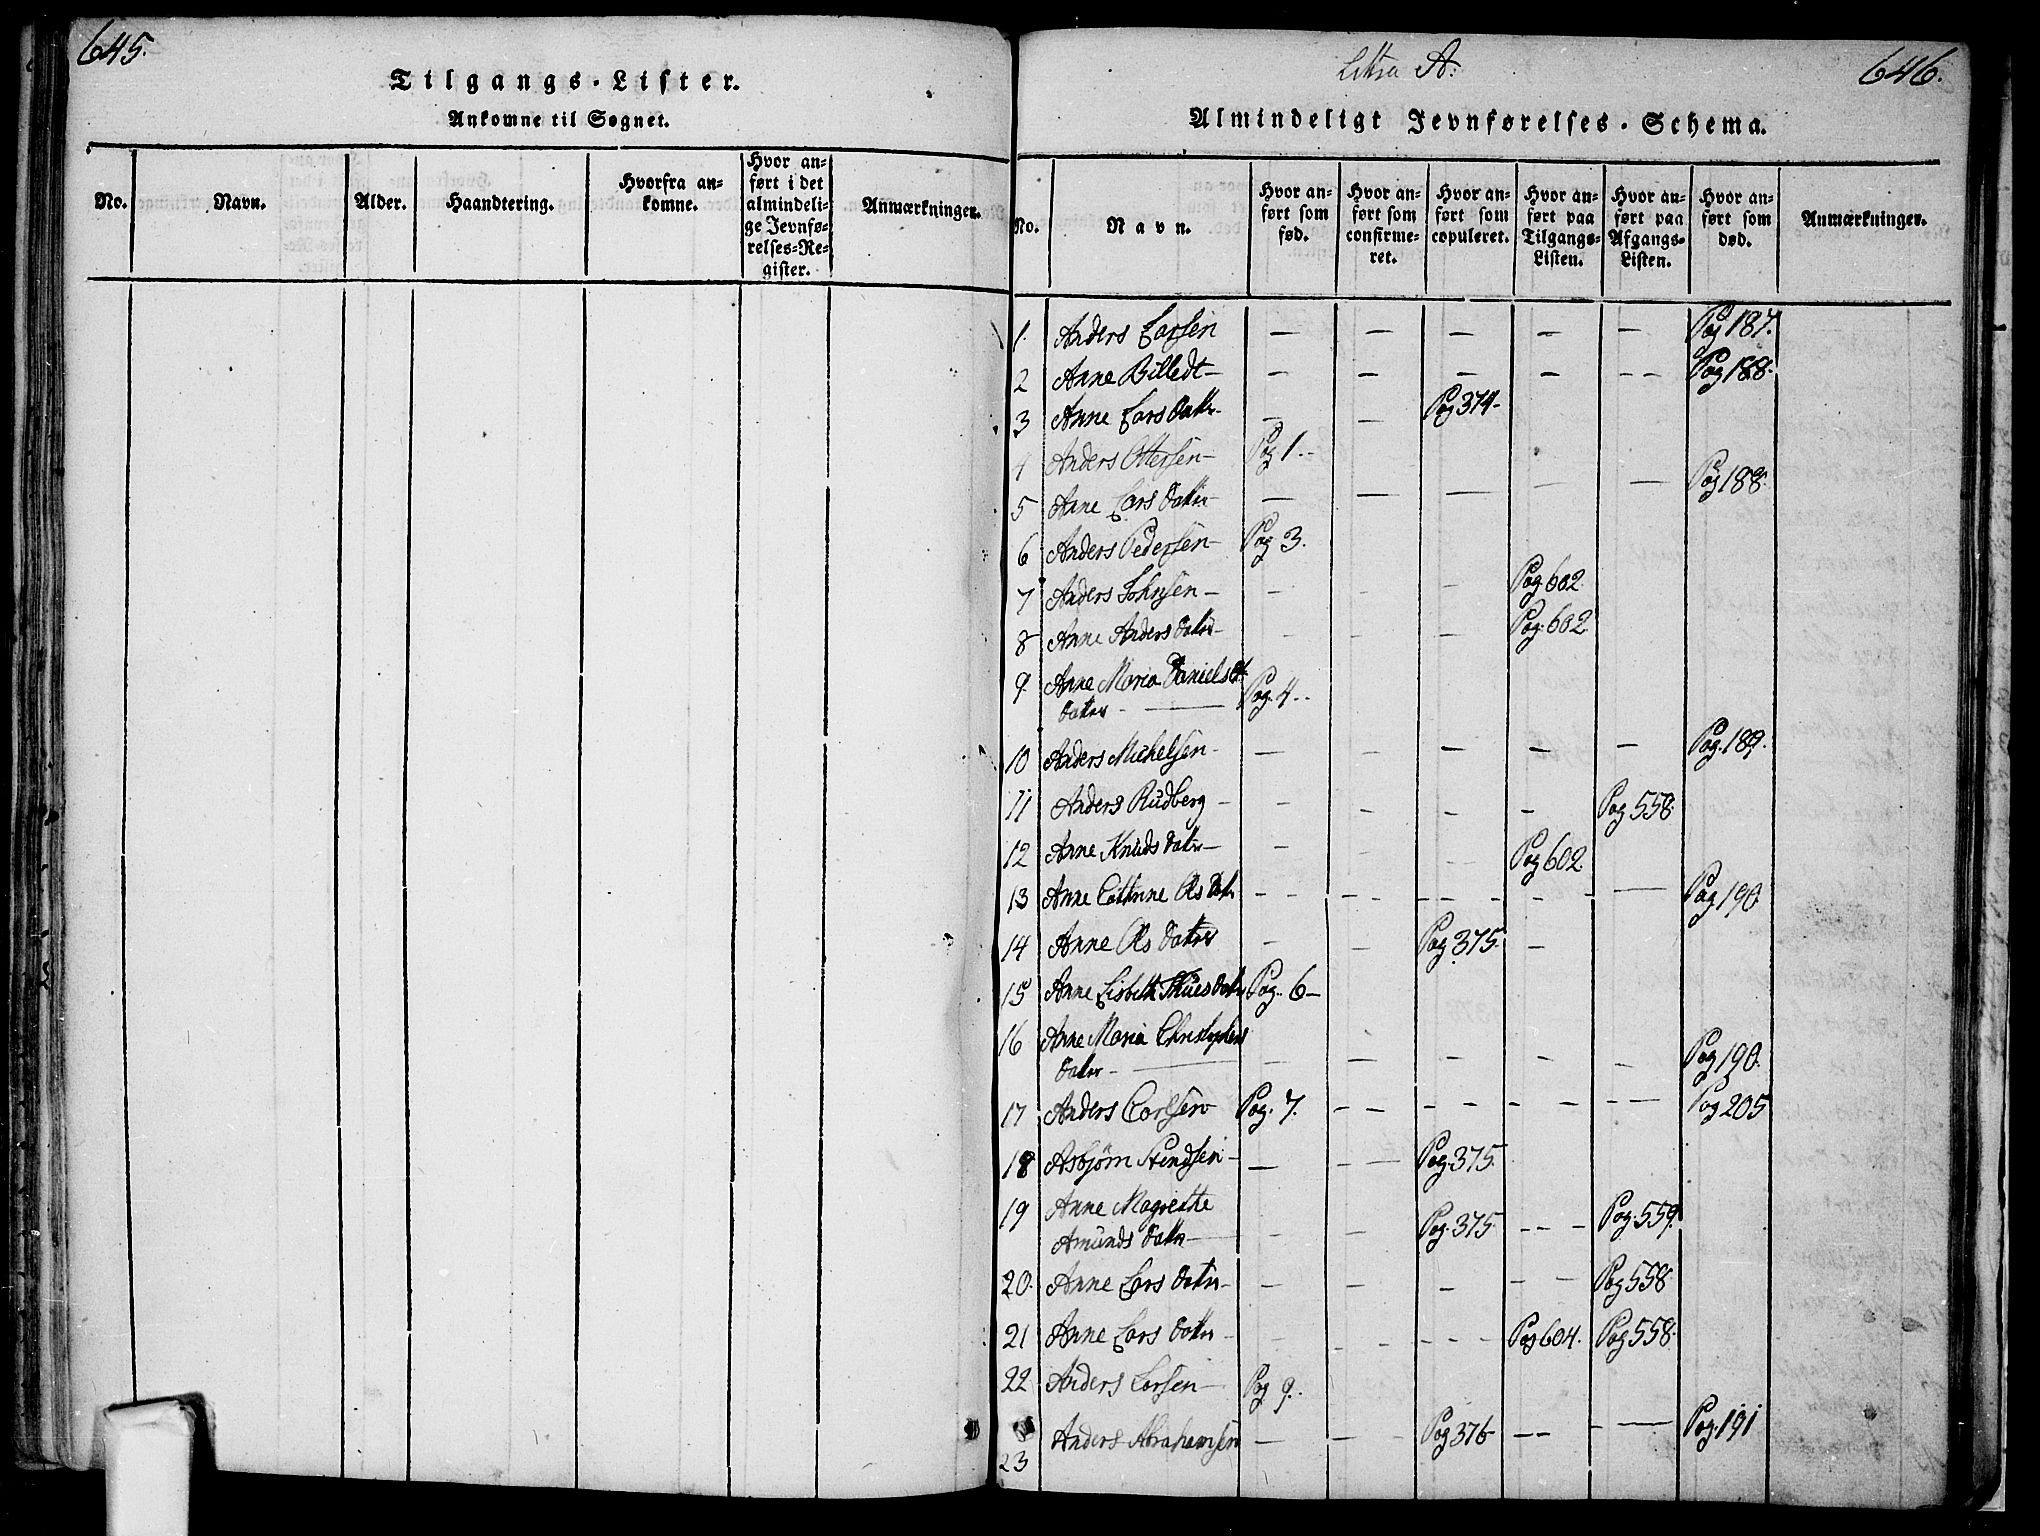 645.
Tilgangs-Lister.
Ankomne til Sognet.
No.
Navn.
Alder.
Haandtering.
Hvorfra an-
komne.
Hvor an-
ført i det
almindeli-
ge Jevnfø-
relses-Re-
gister.
Anmærkninger.
Littra A.
646.
Almindeligt Jevnførelses-Schema.
No.
Navn.
Hvor an-
ført som
fød.
Hvor an-
ført som
confirme-
ret.
Hvor an-
ført som
copuleret.
Hvor an-
ført paa
Tilgangs-
Listen.
Hvor an-
ført paa
Afgangs-
Listen.
Hvor an-
ført som
død.
Anmærkninger.
1. Anders Larsen — — — — — Pag 187.
2 Anne Billedt — — — — — — Pag 188.
3 Anne Lars Datr — — Pag 374-
4 Anders Ottersen — Pag 1.
5 Anne Lars Datr — — — — — Pag 188.
6 Anders Pedersen — Pag 3.
7 Anders Johnsen — — — — Pag 602
8 Anne Anders Datr — — — — Pag. 602
9. Anne Maria Daniels
Datr — Pag. 4
10 Anders Michelsen — — — — — Pag. 189.
11 Anders Rudberg — — — — — Pag 558
12 Anne Knuds Datr — — — — Pag 602.
13 Anne Cathrine Ols Datr — — — — — Pag 190
14 Anne Ols Datr — — Pag 375. —
15 Anne Lisbeth Datr Pag. 6 —
16 Anne Maria Christophers
Datr — — — — — — Pag 190.
17 Anders Carlsen Pag. 7. — — — — Pag 205
18 Asbjørn Stendsen — — — Pag 375.
19 Anne Magrethe
Amunds Datr — — — Pag. 375 — — Pag. 559.
20. Anne Lars Datr — — — — — Pag 558
21 Anne Lars Datr — — — — Pag 604. Pag 558.
22 Anders Larsen — Pag 9.
23 Anders Abrahamsen — — Pag 376 — — Pag. 191